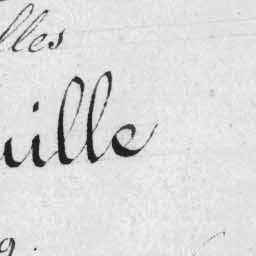 lles
uille
9.